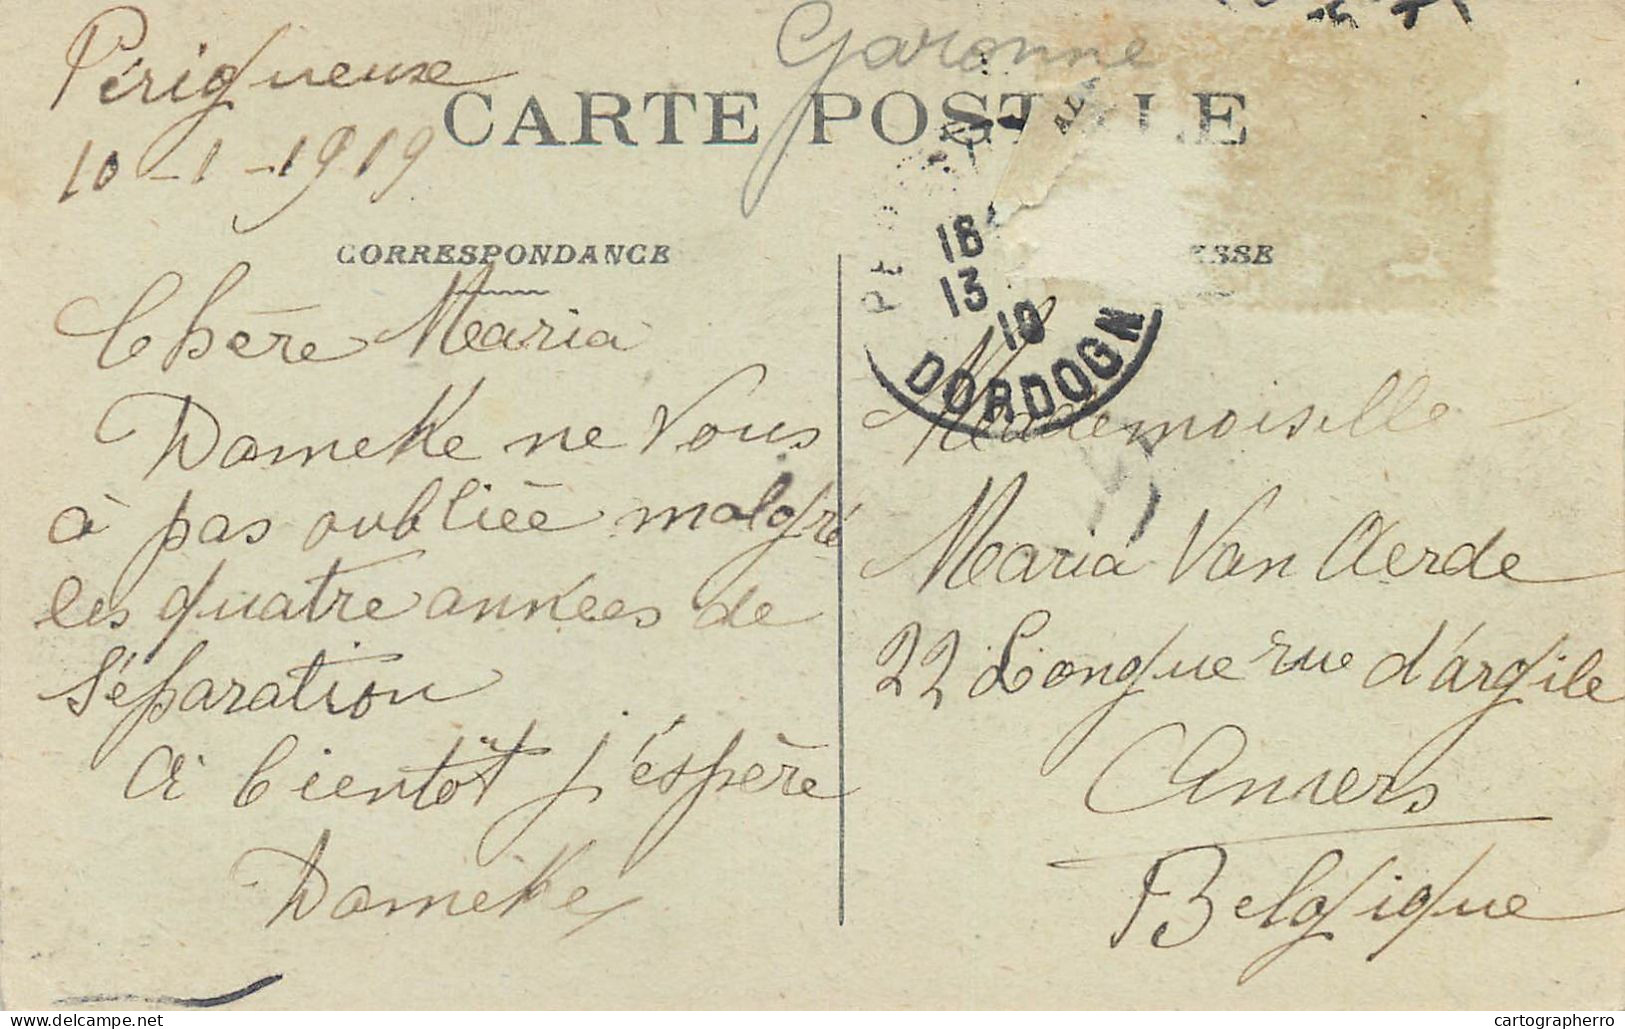 Périgueux
10-1-1919
Garonne
CARTE POSTALE
CORRESPONDANCE
Chère Maria
Domeke ne Vous
à pas oubliée malgré
les quatre années de
Séparation
A bientôt j'éspère
Domeke
18
13
19
DORDOGN
ESSE
Mademoiselle
Maria Van Aerde
22 Longue rue d'argile
Anvers
Belgique
Visit our website www.delcampe.net
cartographerro